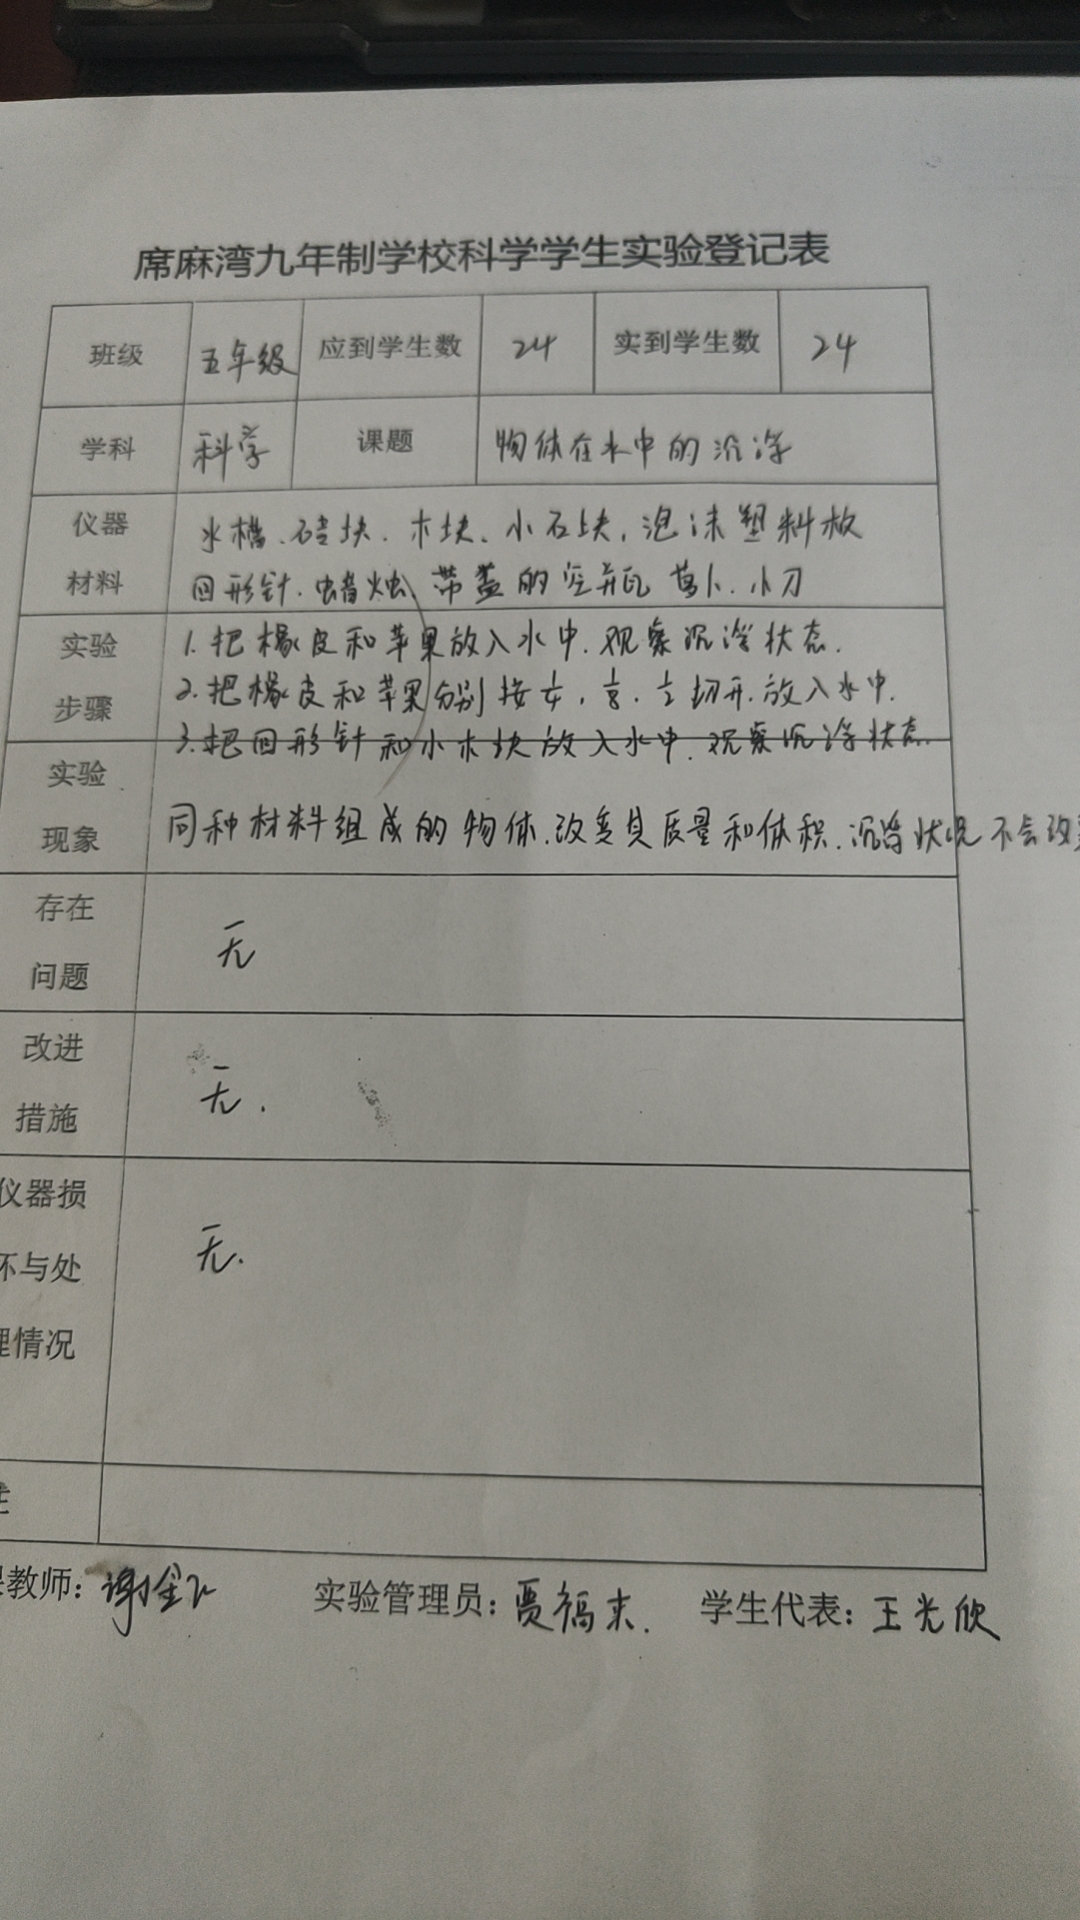 席麻湾九年制学校科学学生实验登记表
班级 五年级 应到学生数 24 实到学生数 24
学科 科学 课题 物体在水中的沉浮
仪器 水槽、砖块、木块、小石块、泡沫塑料板
材料 回形针、蜡烛、带盖的空瓶 萝卜、小刀
实验 1.把橡皮和苹果放入水中.观察沉浮状态.
步骤 2.把橡皮和苹果分别按 切开.放入水中.
3.把回形针和小木块放入水中.观察沉浮状态.
实验
现象 同种材料组成的物体.改变其质量和体积.沉浮状况不会改
存在
问题 无
改进
措施 无.
仪器损
坏与处 无.
理情况
教师: 谢 实验管理员: 贾福来. 学生代表: 王光欣